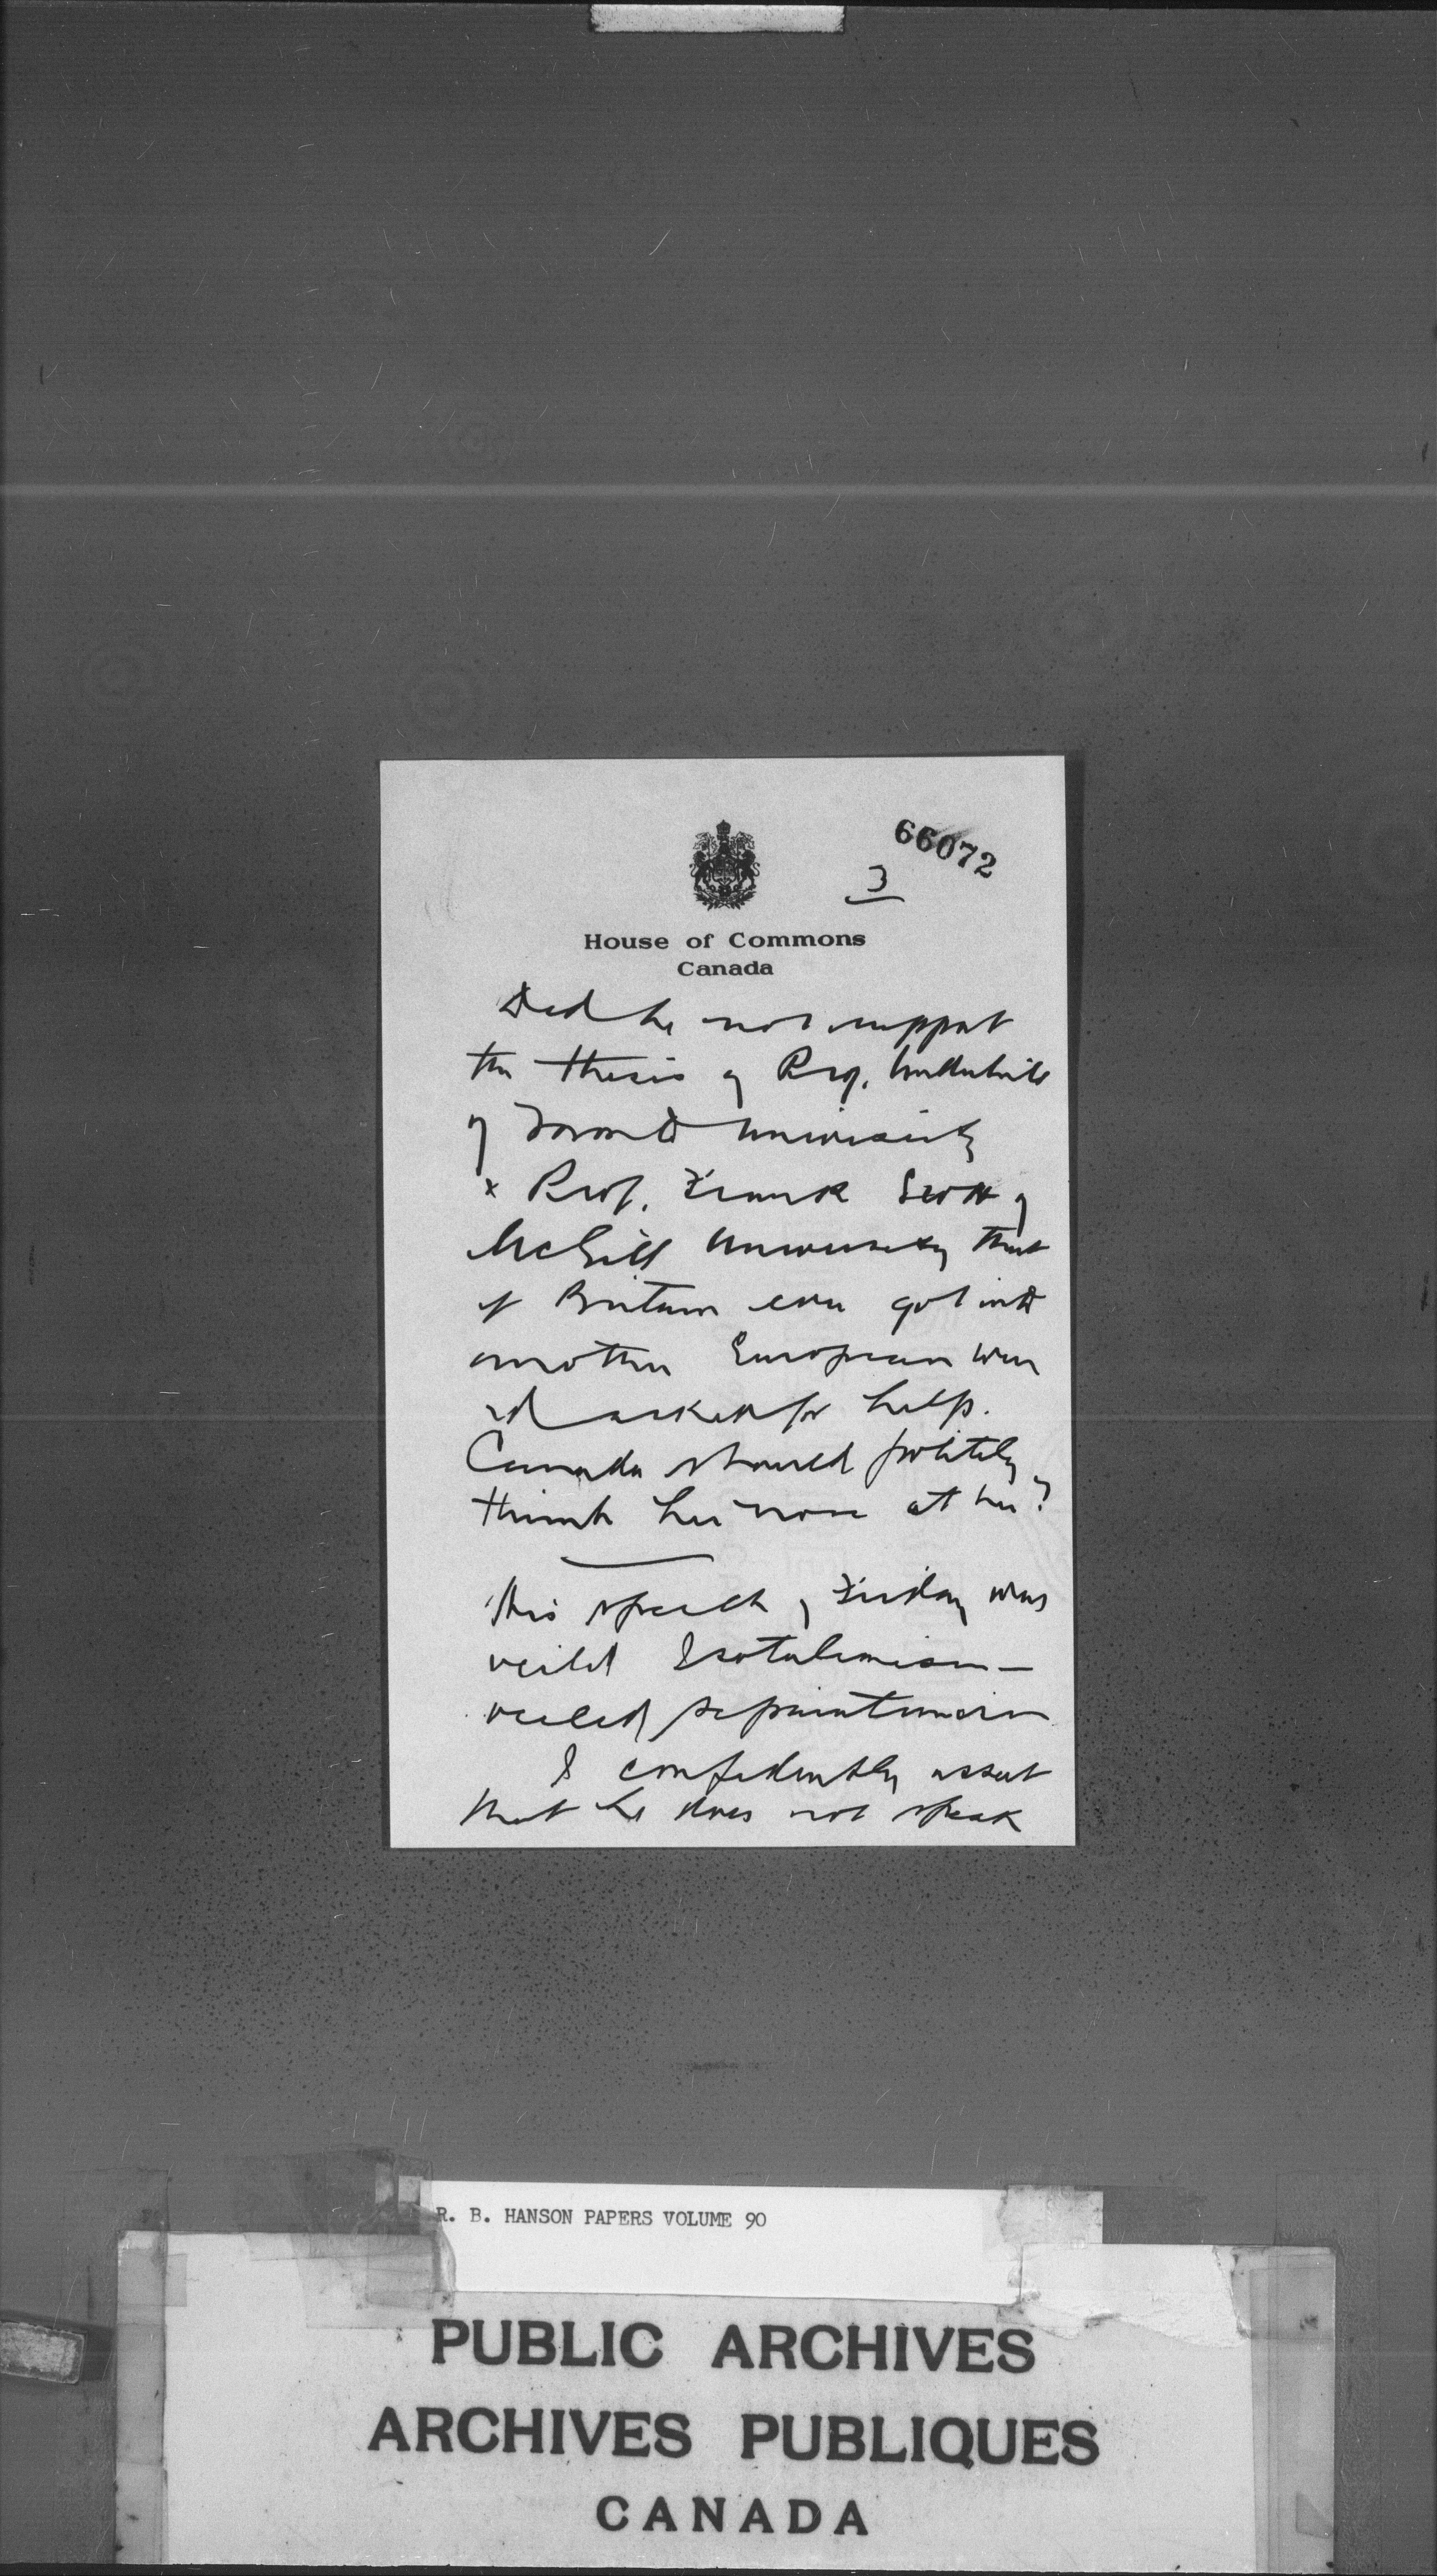 66072
3
House of Commons
Canada
Did he not support
the thesis of Prof. Underhill
of Toronto University
x Prof. Frank Scott of
McGill University that
if Britain ever got into
another European war
and asked for help.
Canada should politely
thumb her nose at her?
His speech of Friday was
veiled Isolationism —
veiled separatism
I confidently assert
that he does not speak
R. B. HANSON PAPERS VOLUME 90
PUBLIC ARCHIVES
ARCHIVES PUBLIQUES
CANADA